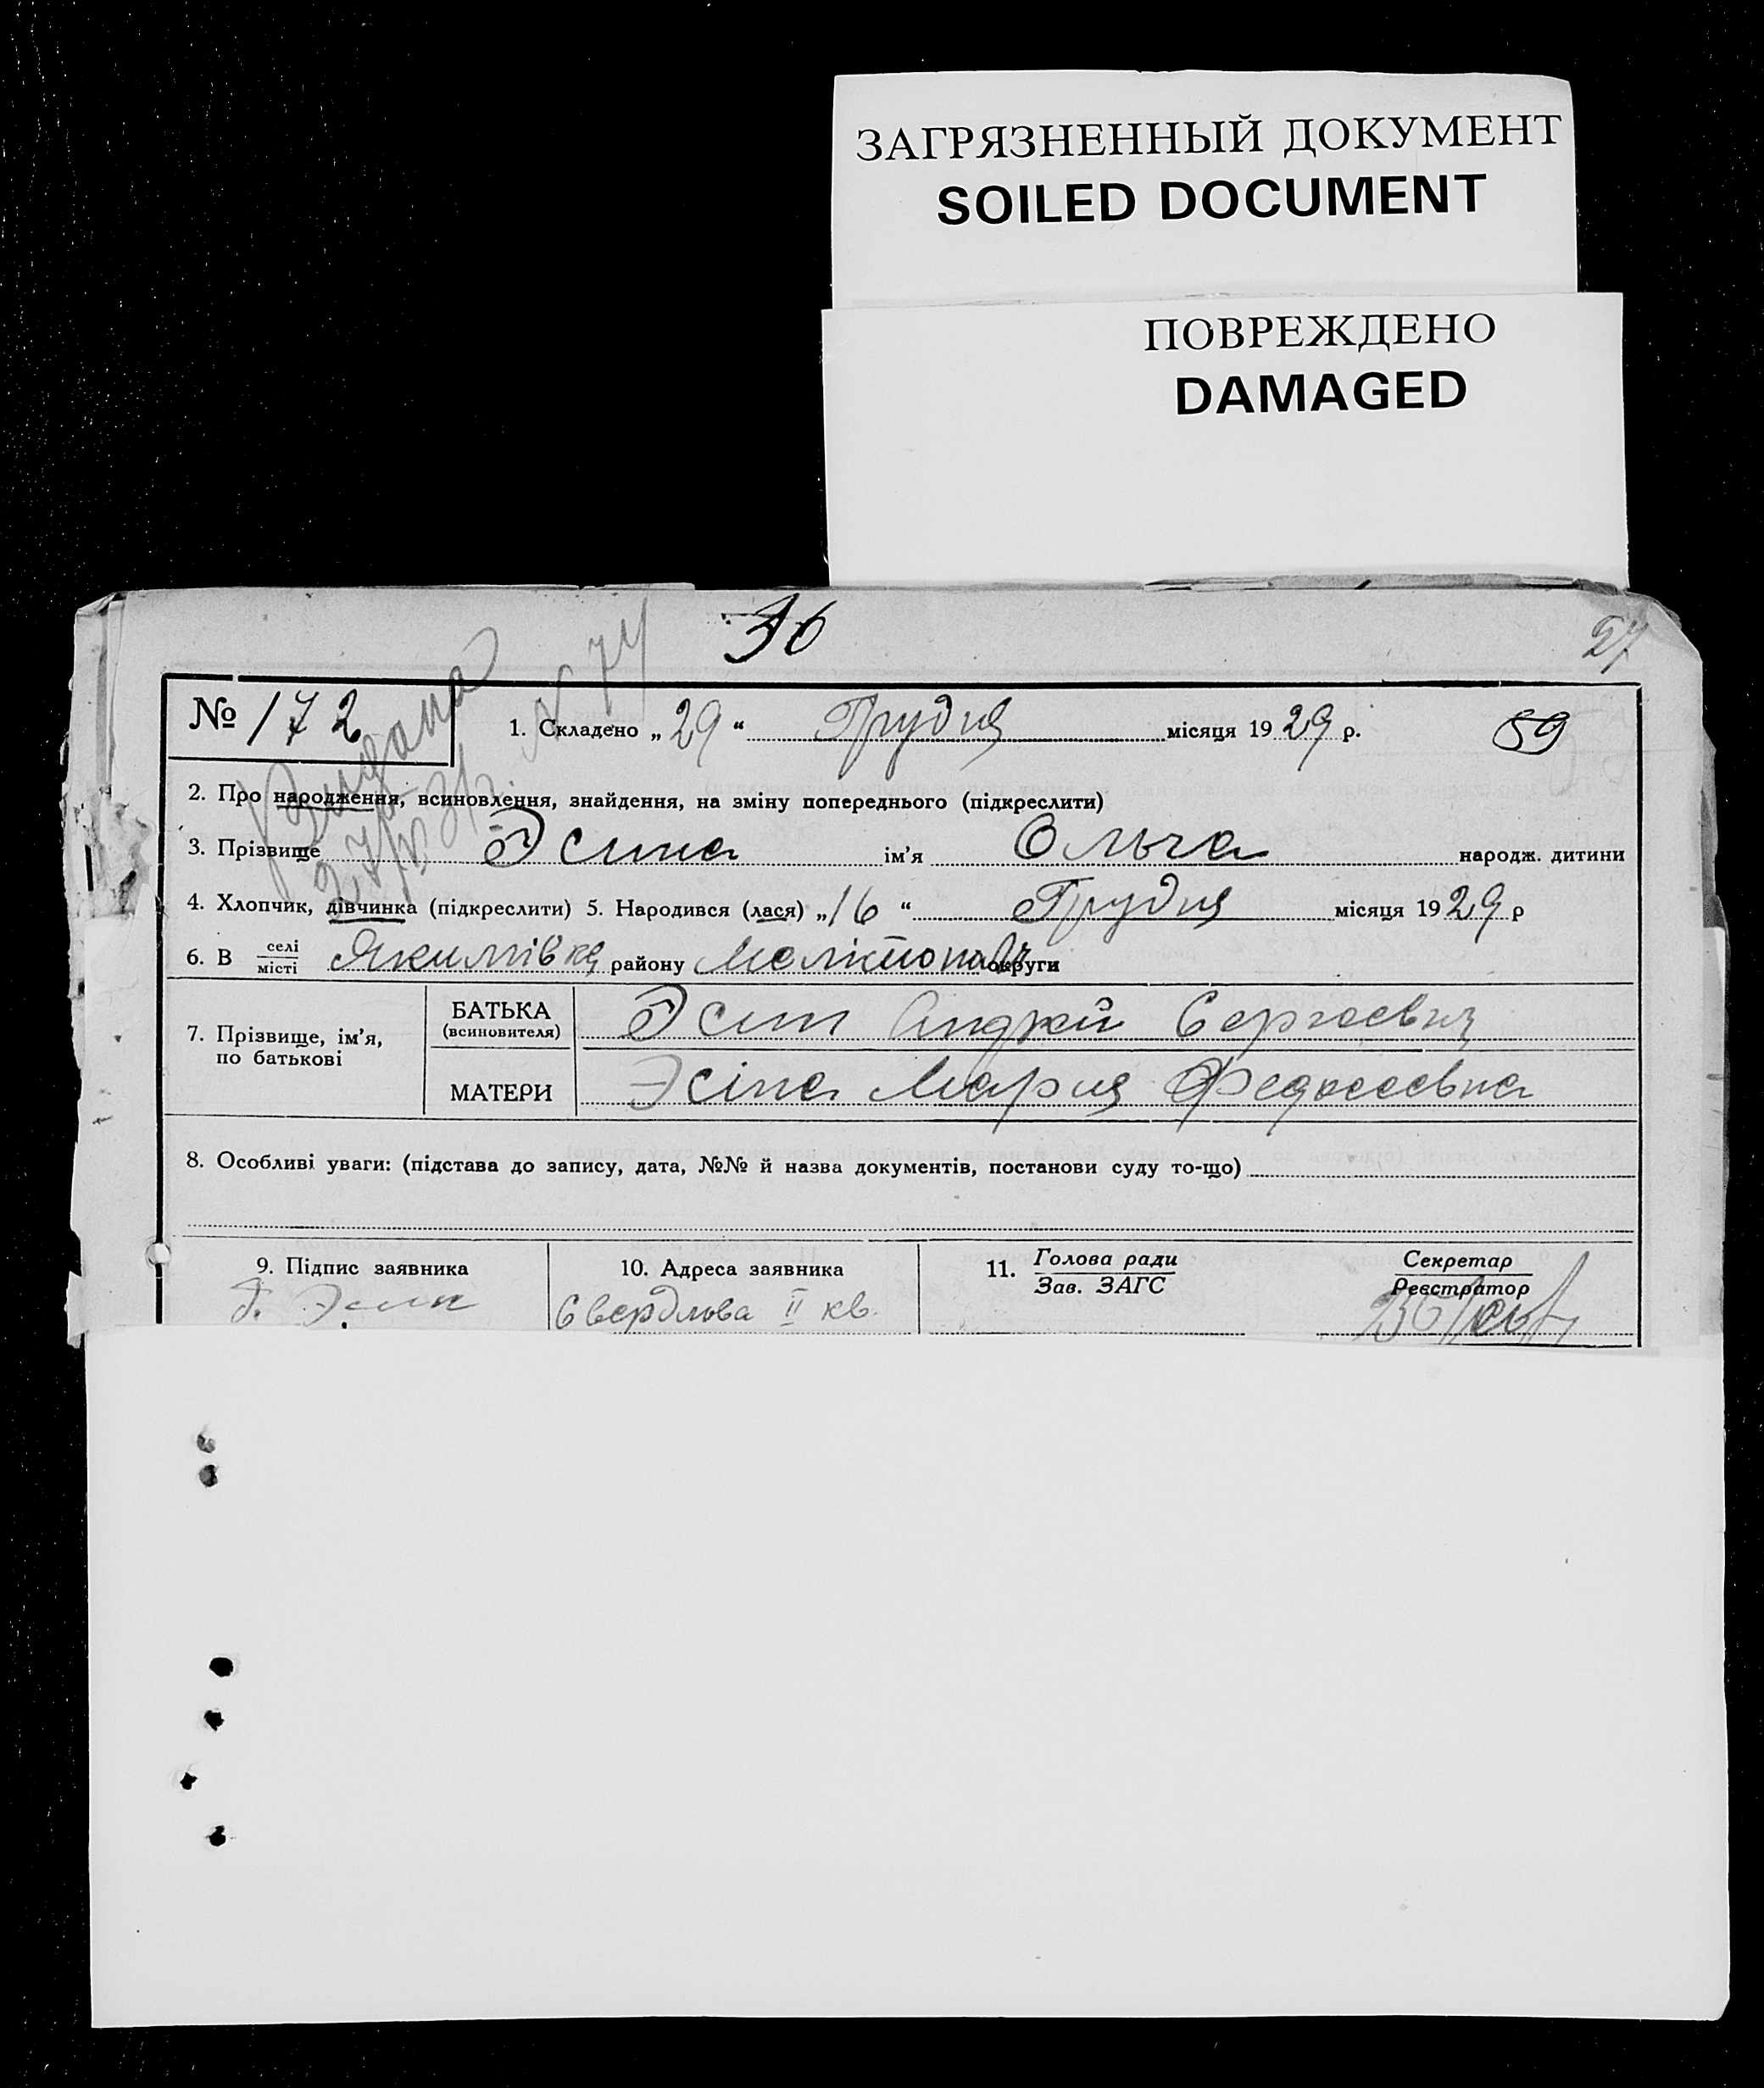 ЗАГРЯЗНЕННЫЙ ДОКУМЕНТ
SOILED DOCUMENT
ПОВРЕЖДЕНО
DAMAGED
36
57
№ 172
1. Складено „ 29 “ Грудня місяця 1929 р.
59
Видана
N 74
2. Про народження, всиновлення, знайдення, на зміну попереднього (підкреслити)
3. Прізвище Эсина ім’я Ольга народж. дитини
4. Хлопчик, дівчинка (підкреслити) 5. Народився (лася) „16 “ Грудня місяця 1929 р
6. В селі/місті Якимівка району Мелітопольс округи
7. Прізвище, ім’я, по батькові
БАТЬКА (всиновителя) Эсин Андрей Сергеевич
МАТЕРИ Эсіна Мария
8. Особливі уваги: (підстава до запису, дата, №№ й назва документів, постанови суду то-що)
9. Підпис заявника
10. Адреса заявника
11. Голова ради/Зав. ЗАГС
Секретар/Реєстратор
Эсин
Свердлова II кв.